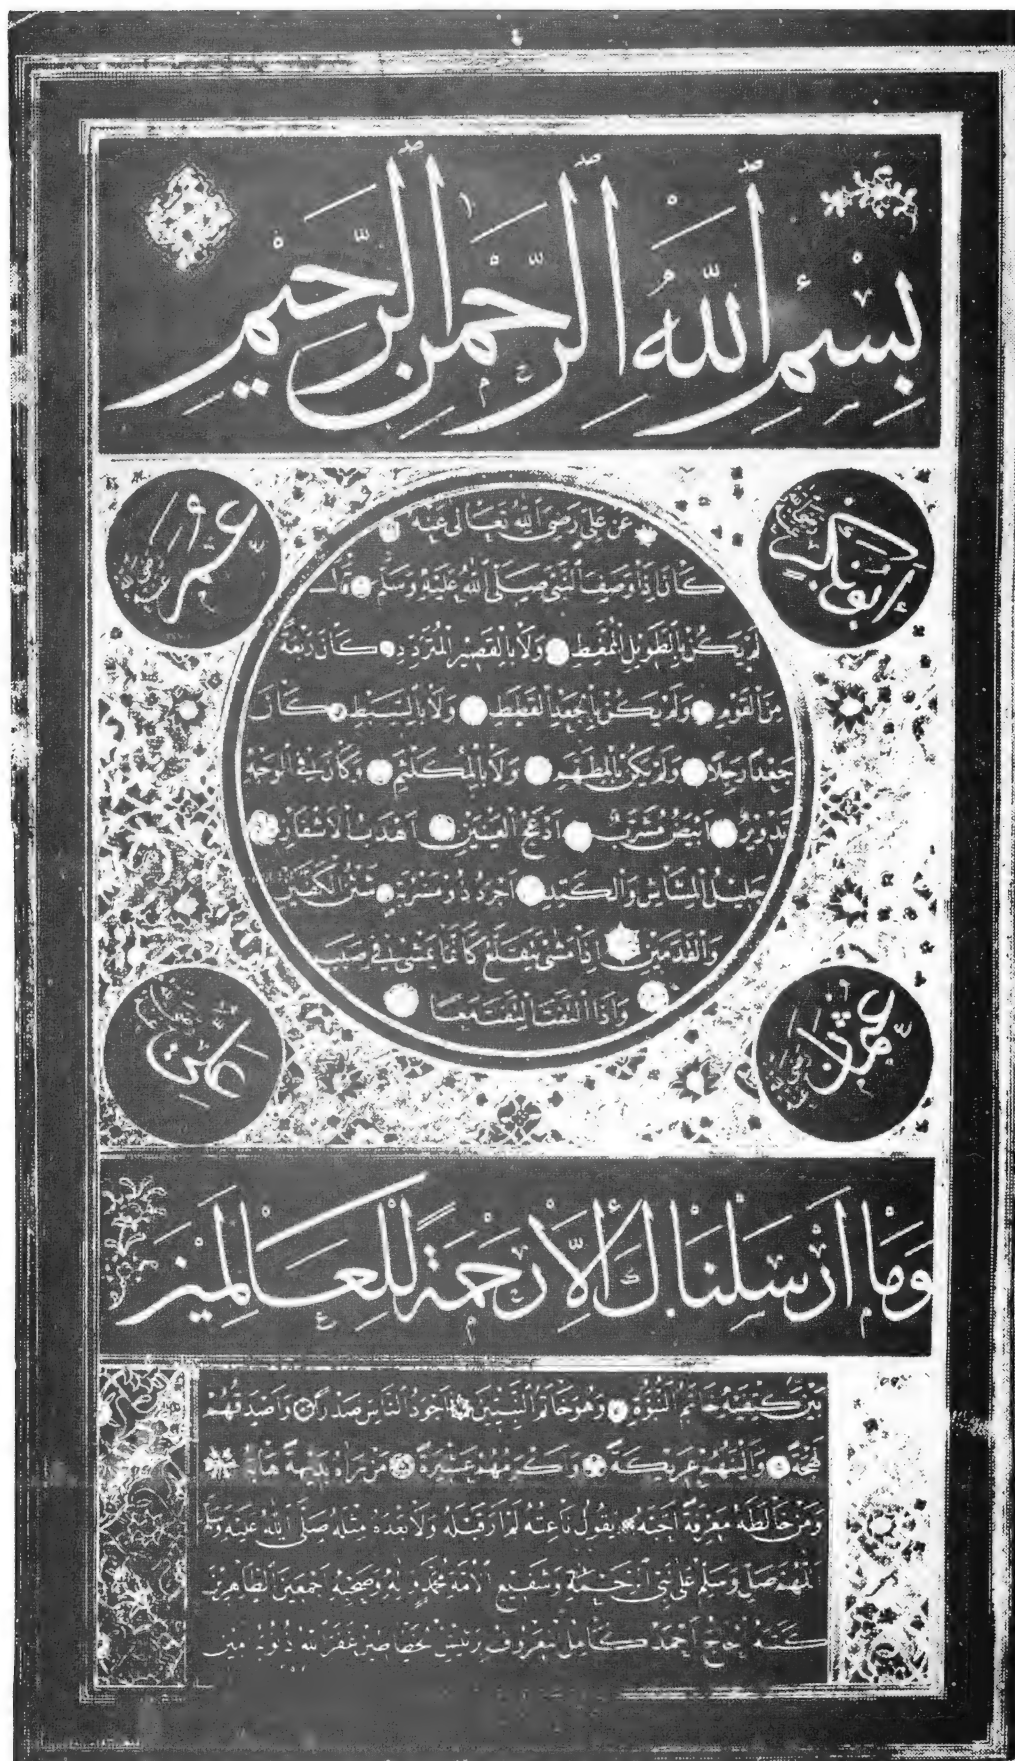 بِسْمِ اللهِ الرَّحْمٰنِ الرَّحِيْمِ
ابوبكر رضي الله عنه
عمر رضي الله عنه
عن علي رضي الله تعالى عنه
كان اذا وصف النبي صلى الله عليه وسلم قال
لم يكن بالطويل الممغط ولا بالقصير المتردد كان ربعة
من القوم ولم يكن بالجعد القطط ولا بالسبط كان
جعدا رجلا ولم يكن بالمطهم ولا بالمكلثم وكان في الوجه
تدوير ابيض مشرب ادعج العينين اهدب الاشفار
جليل المشاش والكتد اجرد ذو مسربة شثن الكفين
والقدمين اذا مشى يتقلع كانما يمشي في صبب
واذا التفت التفت معا
عثمان رضي الله عنه
علي رضي الله عنه
وَمَا أَرْسَلْنَاكَ إِلاَّ رَحْمَةً لِلْعَالَمِيْنَ
بين كتفيه خاتم النبوة وهو خاتم النبيين اجود الناس صدرا واصدقهم
لهجة والينهم عريكة واكرمهم عشيرة من رآه بديهة هابه
ومن خالطه معرفة احبه يقول ناعته لم ار قبله ولا بعده مثله صلى الله عليه وسلم
اللهم صل وسلم على نبي الرحمة وشفيع الامة محمد وآله وصحبه اجمعين الطاهرين
كتبه الحاج احمد كامل المعروف برئيس الخطاطين غفر الله ذنوبه آمين